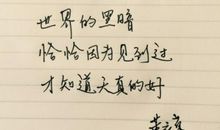 世界的黑暗
恰恰因为见到过
才知道天真的好